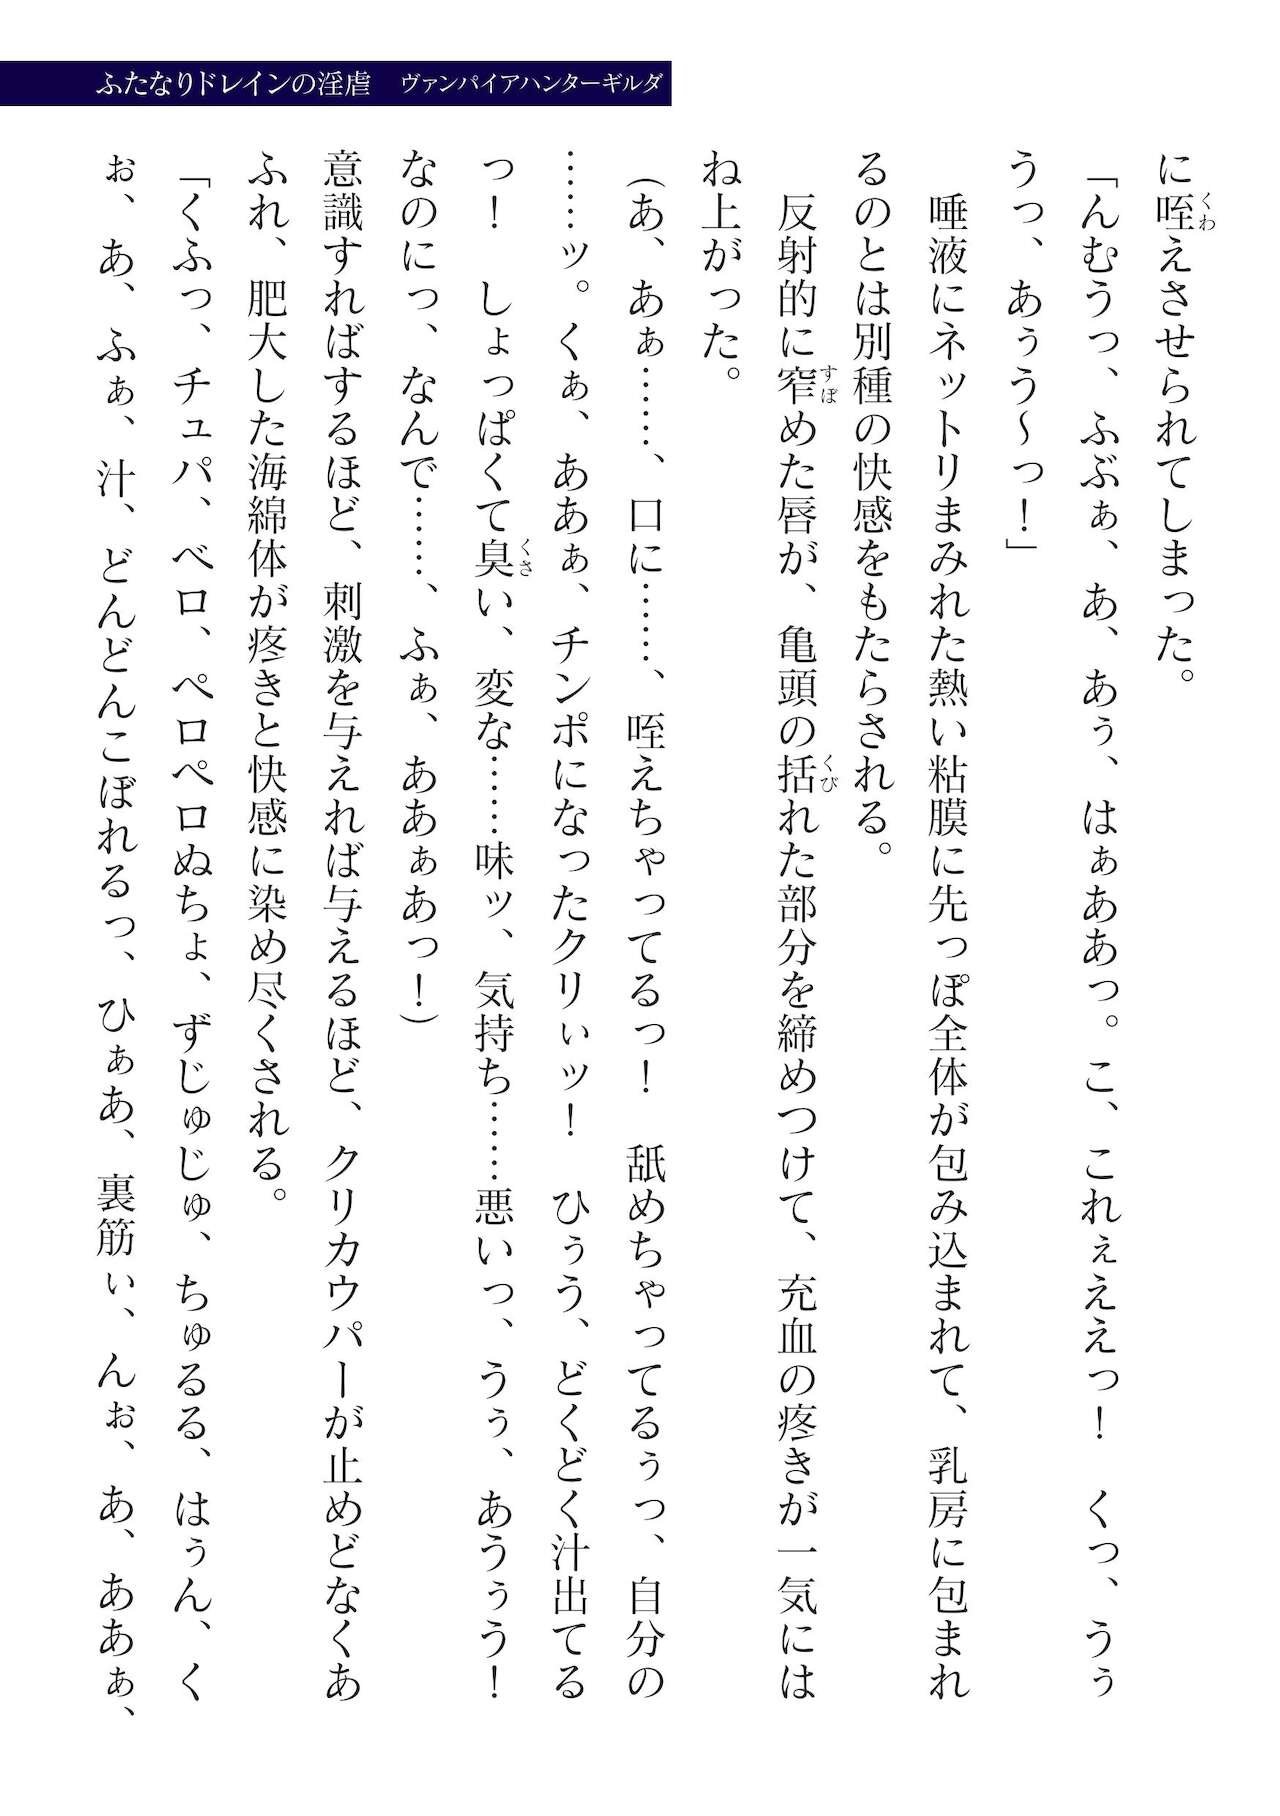 ふたなりドレインの淫虐　ヴァンパイアハンターギルダ
に咥えさせられてしまった。
「んむうっ、ふぶぁ、あ、あぅ、はぁああっ。こ、これぇええっ！　くっ、うぅ
うっ、あぅう〜っ！」
　唾液にネットリまみれた熱い粘膜に先っぽ全体が包み込まれて、乳房に包まれ
るのとは別種の快感をもたらされる。
　反射的に窄めた唇が、亀頭の括れた部分を締めつけて、充血の疼きが一気には
ね上がった。
（あ、あぁ……、口に……、咥えちゃってるっ！　舐めちゃってるぅっ、自分の
……ッ。くぁ、ああぁ、チンポになったクリぃッ！　ひぅう、どくどく汁出てる
っ！　しょっぱくて臭い、変な……味ッ、気持ち……悪いっ、うぅ、あうぅう！
なのにっ、なんで……、ふぁ、ああぁあっ！）
意識すればするほど、刺激を与えれば与えるほど、クリカウパーが止めどなくあ
ふれ、肥大した海綿体が疼きと快感に染め尽くされる。
「くふっ、チュパ、ベロ、ペロペロぬちょ、ずじゅじゅ、ちゅるる、はぅん、く
ぉ、あ、ふぁ、汁、どんどんこぼれるっ、ひぁあ、裏筋ぃ、んぉ、あ、ああぁ、